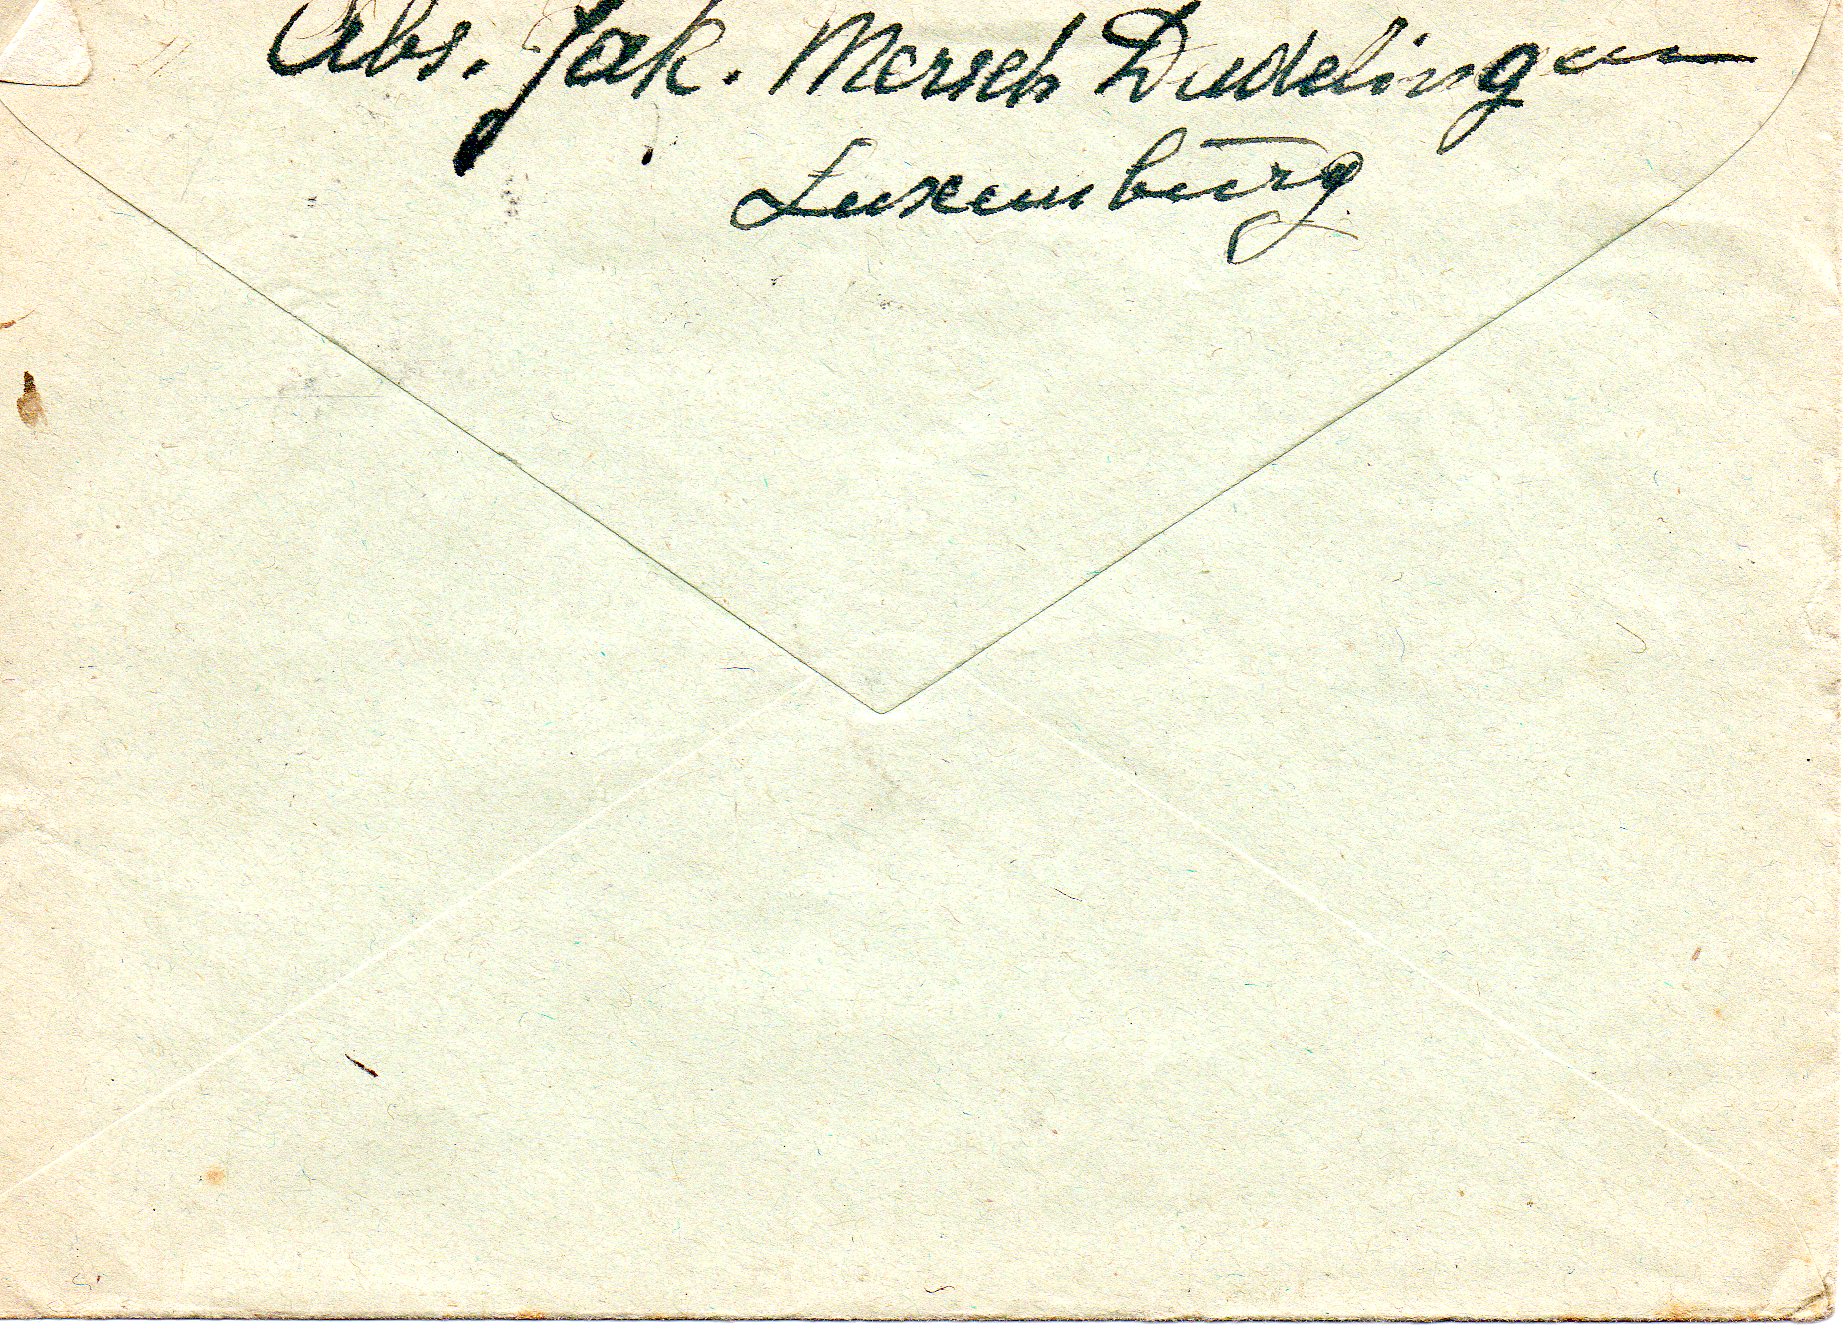 Abs. Jak. Mersch Dudelingen
Luxemburg